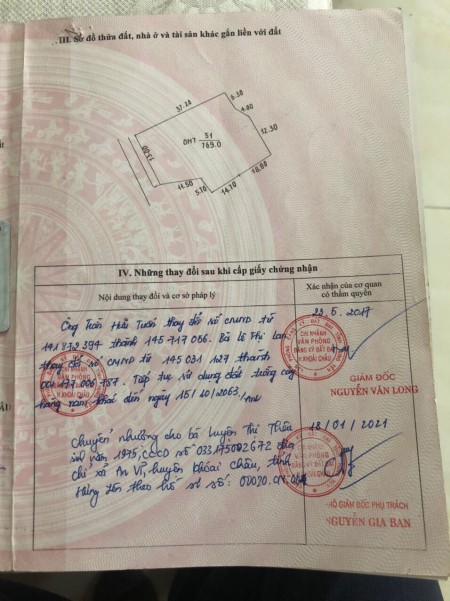 III. Sơ đồ thửa đất, nhà ở và tài sản khác gắn liền với đất
37.28
6.30
4.00
12.30
13.00
ONT 51
769.0
10.00
14.10
5.10
11.50
IV. Những thay đổi sau khi cấp giấy chứng nhận
Nội dung thay đổi và cơ sở pháp lý
Xác nhận của cơ quan
có thẩm quyền
Ông Trần Hải Tuấn thay đổi số CMND từ
141872394 thành 145717066. Bà Lê Thị Lan
thay đổi số CMND từ 145031127 thành
001177006787. Tiếp tục sử dụng đất trồng cây
hàng năm khác đến ngày 15/10/2063
23.5.2017
CHI NHÁNH
VĂN PHÒNG
ĐĂNG KÝ ĐẤT ĐAI
H.KHOÁI CHÂU
GIÁM ĐỐC
NGUYỄN VĂN LONG
Chuyển nhượng cho bà Luyện Thị Thêu
sinh năm 1975, CCCD số 033175002672 địa
chỉ xã An Vĩ, huyện Khoái Châu, tỉnh
Hưng Yên theo hồ sơ số: 00020.CN.
18/01/2021
CHI NHÁNH
VĂN PHÒNG
ĐĂNG KÝ ĐẤT ĐAI
H.KHOÁI CHÂU
PHÓ GIÁM ĐỐC PHỤ TRÁCH
NGUYỄN GIA BAN